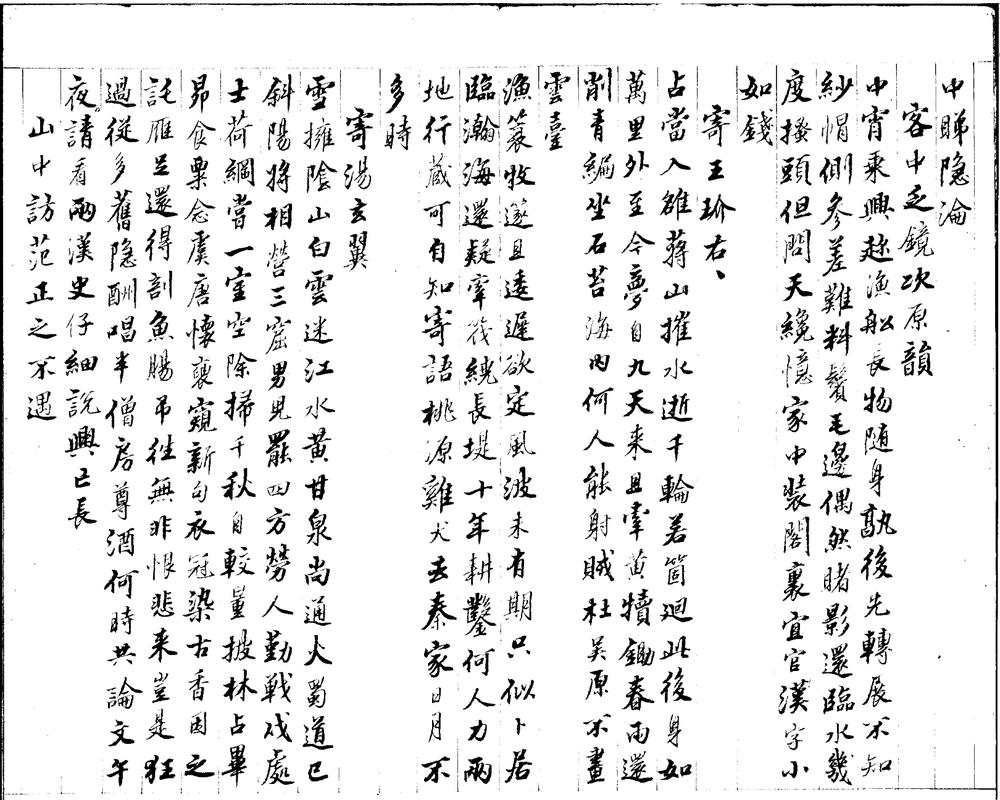 中睇隐淪
客中乏鏡次原韻
中宵乘興趂漁船長物随身孰後先轉展不知
紗帽側參差難料鬢毛邊偶然睹影還臨水幾
度搔頭但問天纔憶家中裝閣裏宜官漢字小
如錢
寄王玠右
占當入雒蔣山摧水逝千輪若箇迴此後身如
萬里外至今夢自九天来且牽黄犢鋤春雨還
削青編坐石苔海内何人能射賊杜吴原不畫
雲臺
漁簑牧邃且逶遲欲定風波未有期只似卜居
臨瀚海還疑窜筏繞長堤十年耕鑿何人力兩
地行藏可自知寄語桃源雞犬去秦家日月不
多時
寄湯玄翼
雪擁陰山白雲迷江水黄甘泉尚通火蜀道已
斜陽將相營三窟男児罷四方勞人勤戰伐處
士荷綱嘗一室空除掃千秋自較量披林占畢
昴食栗念虞唐懷襄窺新句衣冠染古香因之
託雁足還得剖魚腸吊往無非恨悲来豈是狂
過從多舊隐酬唱半僧房尊酒何時共論文午
夜請看兩漢史仔細説興亡長
山中訪范正之不遇